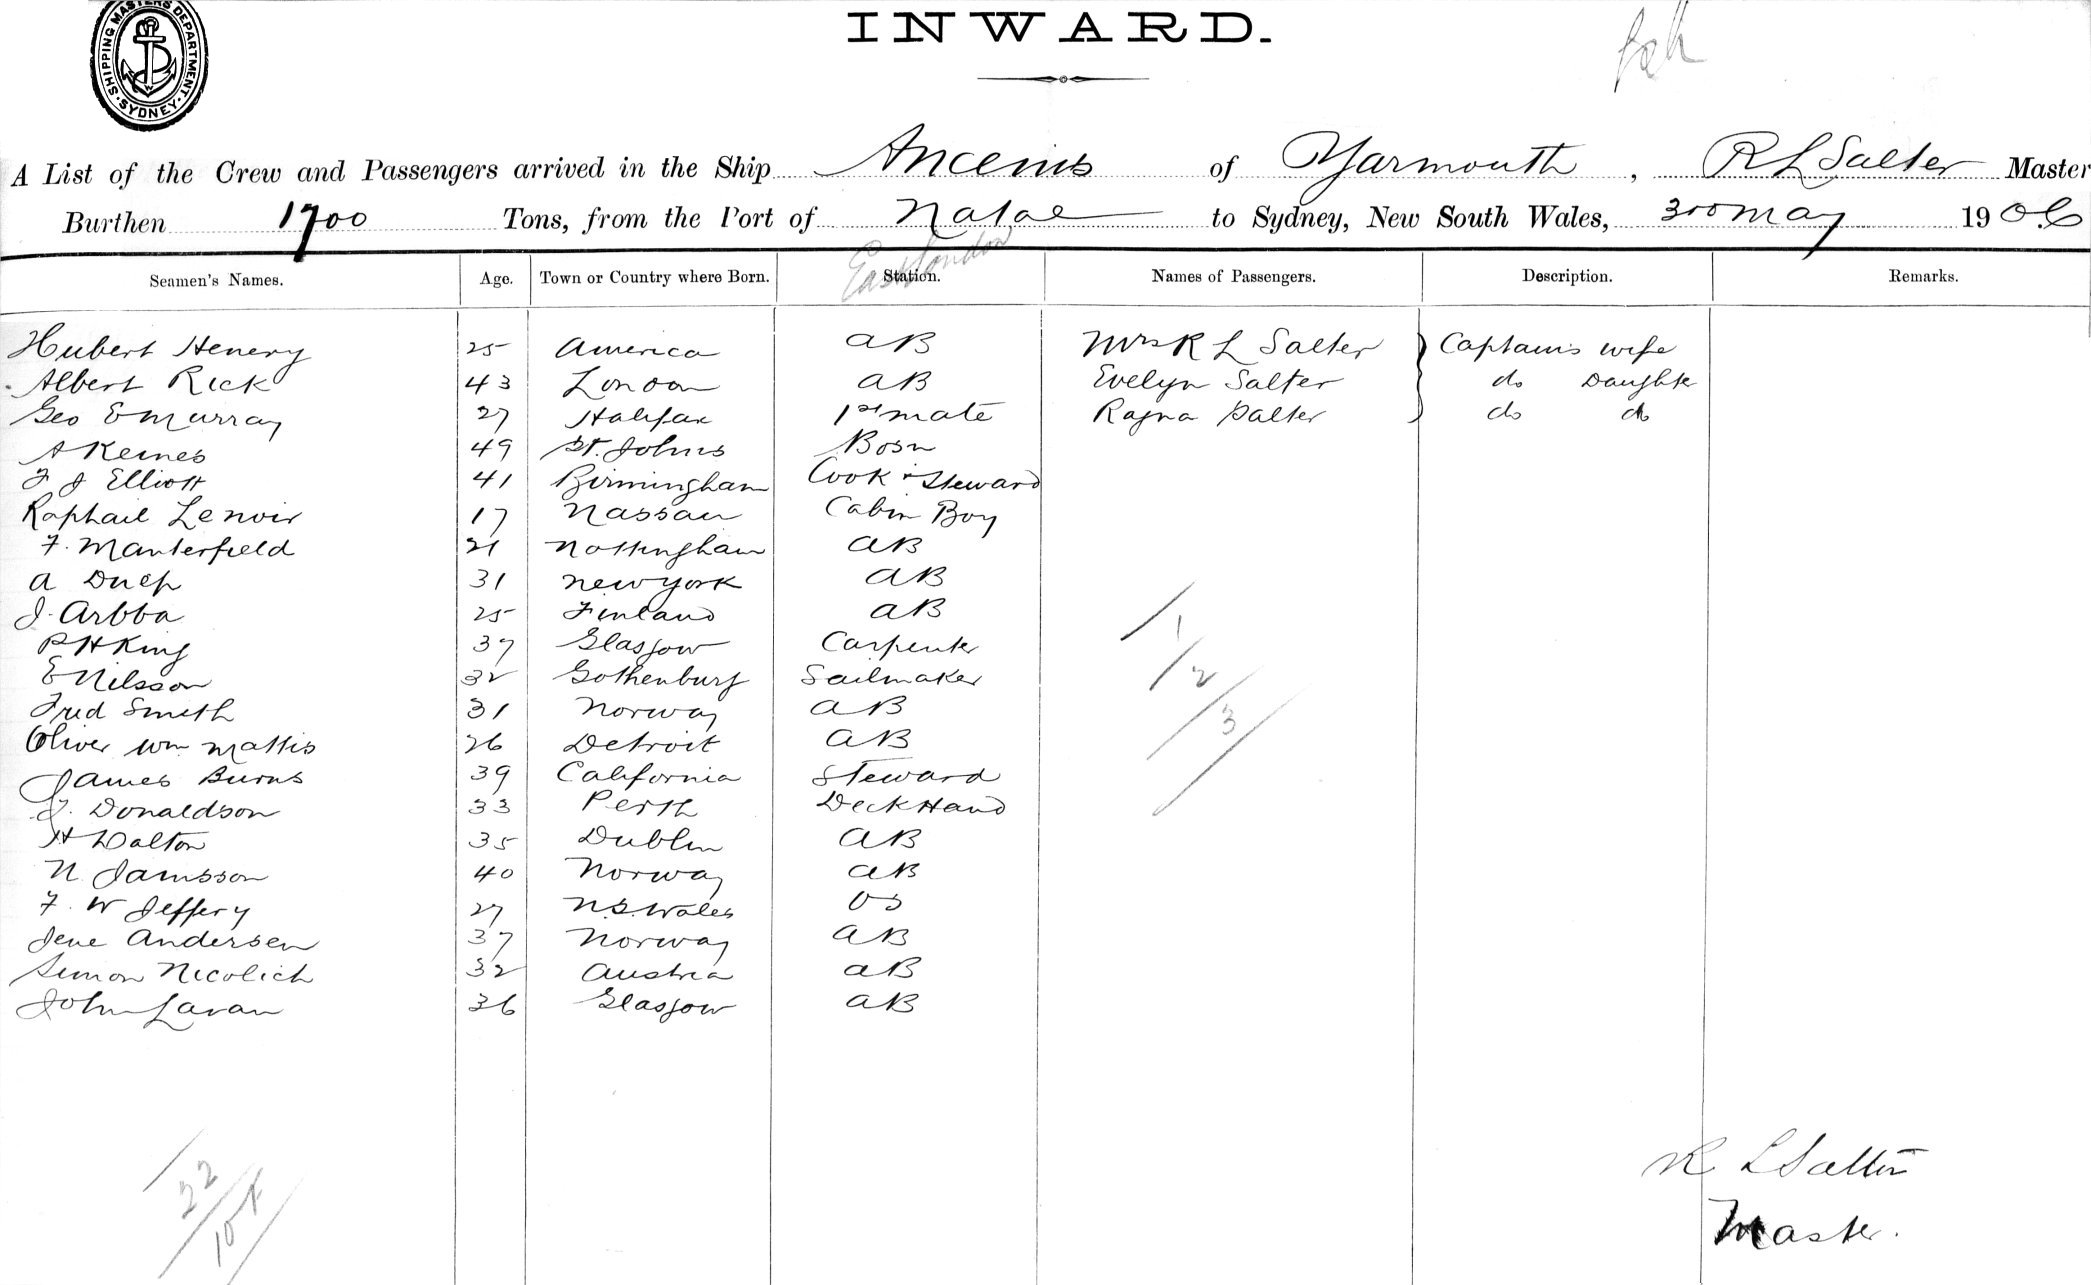 SHIPPING MASTERS DEPARTMENT. SYDNEY.
INWARD.
A List of the Crew and Passengers arrived in the Ship Ancenis of Yarmouth, R L Salter Master
Burthen 1700 Tons, from the Port of Natal to Sydney, New South Wales, May 1906
East London
Seamen's Names. Age. Town or Country where Born. Station. Names of Passengers. Description. Remarks.
Hubert Henery 25 America AB Mrs R L Salter Captains wife
Albert Rick 43 London AB Evelyn Salter do Daughter
Geo E Murray 27 Halifax 1st mate Ragna Salter do do
A Keines 49 St. Johns Bosn
F J Elliott 41 Birmingham Cook & Steward
Raphail Lenoir 17 Nassau Cabin Boy
F. Manterfield 21 Nottingham AB
A Duep 31 New York AB
J. Arbba 25 Finland AB
P H King 37 Glasgow Carpenter
E Nilsson 32 Gothenburg Sailmaker
Fred Smith 31 Norway AB
Oliver Wm Mattis 26 Detroit AB
James Burns 39 California Steward
J. Donaldson 33 Perth Deck Hand
H Dalton 35 Dublin AB
N Jamsson 40 Norway AB
F. W Jeffery 27 N.S. Wales OS
Jene Andersen 37 Norway AB
Simon Nicolich 32 Austria AB
John Lavan 36 Glasgow AB
1
2
3
22
R L Salter
Master.